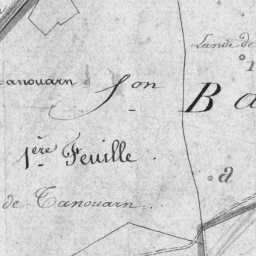 Lande de
anouarn Son Ba
1ère Feuille.
a
de Tanouarn.